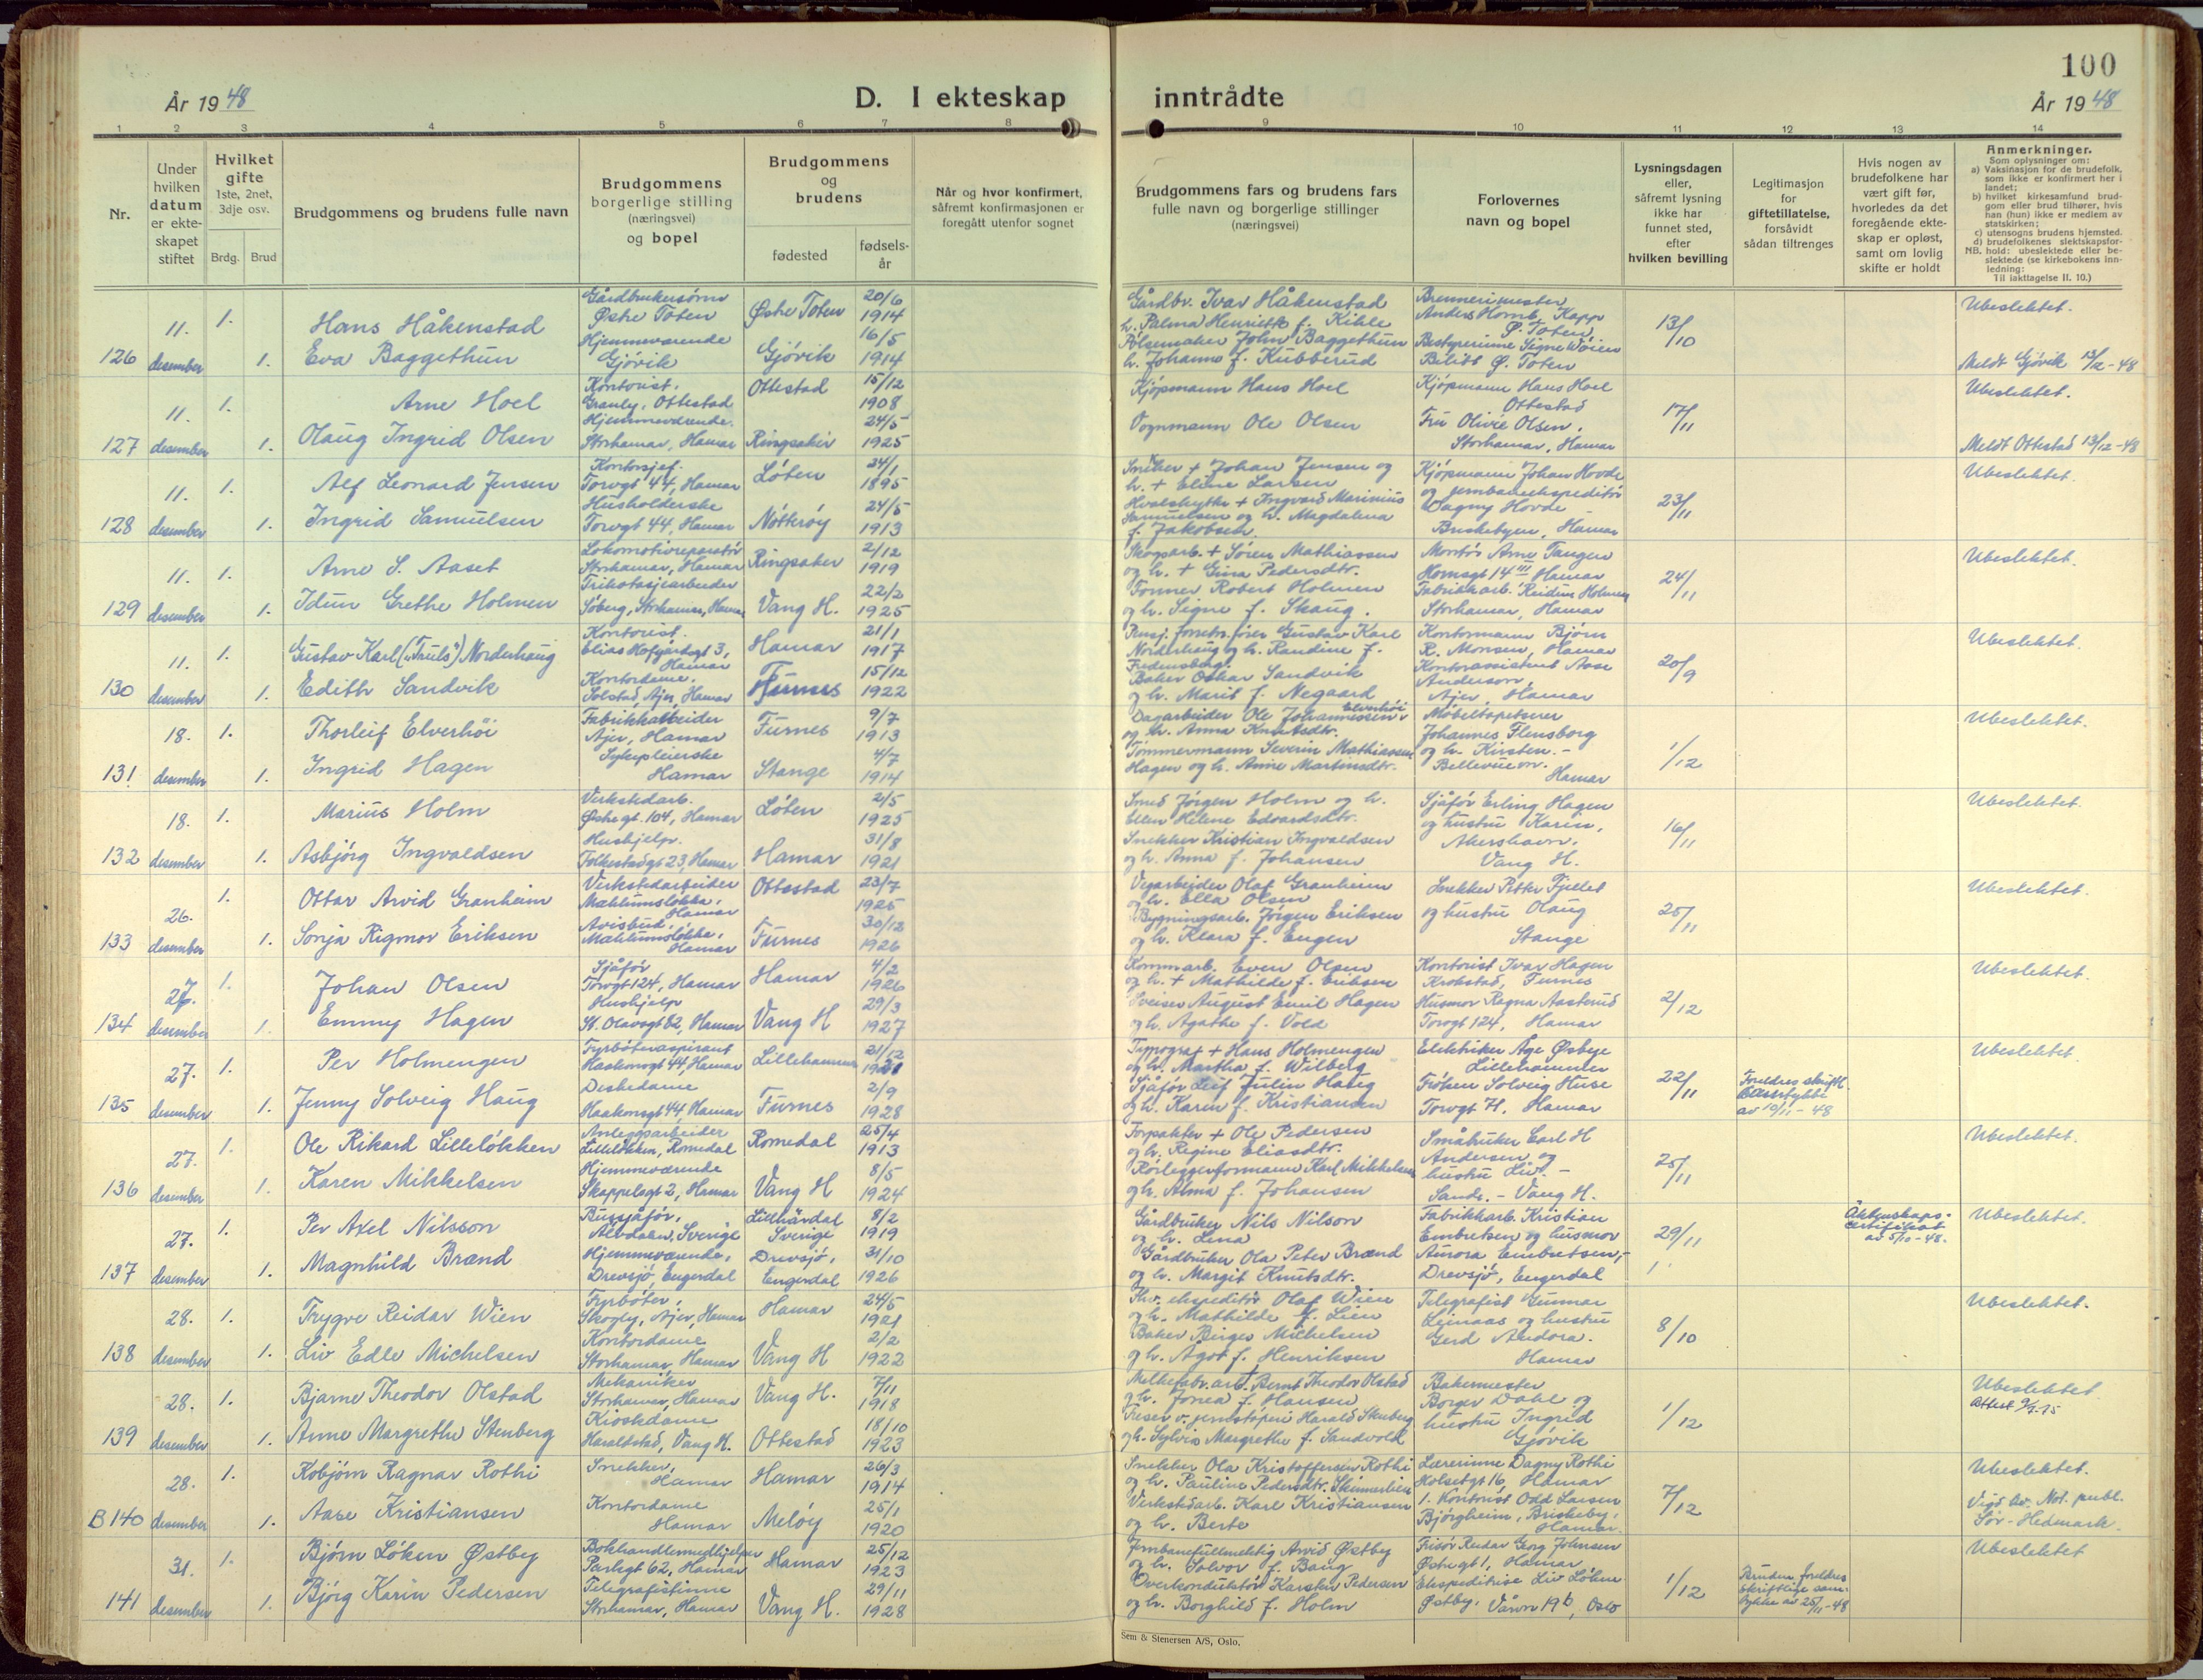 100
År 1948
D. I ekteskap inntrådte
År 1948
1 2 3 4 5 6 7 8 9 10 11 12 13 14
Nr.
Under hvilken datum er ekteskapet stiftet
Hvilket gifte 1ste, 2net, 3dje osv.
Brdg. Brud
Brudgommens og brudens fulle navn
Brudgommens borgerlige stilling (næringsvei) og bopel
Brudgommens og brudens
fødested
fødselsår
Når og hvor konfirmert, såfremt konfirmasjonen er foregått utenfor sognet
Brudgommens fars og brudens fars fulle navn og borgerlige stillinger (næringsvei)
Forlovernes navn og bopel
Lysningsdagen eller, såfremt lysning ikke har funnet sted, efter hvilken bevilling
Legitimasjon for giftetillatelse, forsåvidt sådan tiltrenges
Hvis nogen av brudefolkene har vært gift før, hvorledes da det foregående ekteskap er opløst, samt om lovlig skifte er holdt
Anmerkninger.
Som oplysninger om:
a) Vaksinasjon for de brudefolk, som ikke er konfirmert her i landet;
b) hvilket kirkesamfund brudgom eller brud tilhører, hvis han (hun) ikke er medlem av statskirken;
c) utensogns brudens hjemsted.
d) brudefolkenes slektskapsforhold: ubeslektede eller beslektede (se kirkebokens innledning:
NB.
Til iakttagelse II. 10.)
126 11. desember 1. 1.
Hans Håkenstad
Eva Baggethun
Gårdbrukersønn Østre Toten
Hjemmeværende Gjøvik
Østre Toten 20/6 1914
Gjøvik 16/5 1914
Gårdbr. Ivar Håkenstad
h. Palma Henriette f. Kihle
Pølsemaker John Baggethun
h. Johanne f. Kubberud
Brennerimester Anders Homb, Kapp Ø. Toten
Bestyrerinne Signe Wøien Bilitt Ø. Toten
13/10
Ubeslektet.
Meldt Gjøvik 13/12-48
127 11. desember 1. 1.
Arne Hoel
Olaug Ingrid Olsen
Kontorist, Granly, Ottestad
Hjemmeværende. Storhamar, Hamar
Ottestad 15/12 1908
Ringsaker 24/5 1925
Kjøpmann Hans Hoel
Vognmann Ole Olsen
Kjøpmann Hans Hoel Ottestad
Fru Olivie Olsen, Storhamar, Hamar
17/11
Ubeslektet.
Meldt Ottestad 13/12-48
128 11. desember 1. 1.
Alf Leonard Jensen
Ingrid Samuelsen
Kontorsjef. Torvgt 44, Hamar
Husholderske Torvgt 44, Hamar
Løten 24/1 1895
Nøtterøy 24/5 1913
Snekker + Johan Jensen og
h. + Eline Larsen
Hvalskytter + Ingvard Marinius
Samuelsen og h. Magdalena
f. Jakobsen
Kjøpmann Johan Hovde
og jernbaneekspeditør
Dagny Hovde
Briskebyen, Hamar
23/11
Ubeslektet.
129 11. desember 1. 1.
Arne S. Aaset
Idun Grethe Holmen
Lokomotivreparatør Storhamar, Hamar
Trikotasjearbeider Søberg, Storhamar, Hamar
Ringsaker 2/12 1919
Vang H. 22/2 1925
Skogsarb. + Søren Mathiassen
og h. + Gina Pedersdtr.
Tømmer Robert Holmen
og h. Signe f. Skaug.
Montør Arne Tangen
Hornsgt 14 III Hamar
Fabrikkarb. Reidun Holmen
Storhamar, Hamar
24/11
Ubeslektet.
130 11. desember 1. 1.
Gustav Karl („Truls") Norderhaug
Edith Sandvik
Kontorist. Elias Hofgårdsgt 3, Hamar
Kontordame. Solstad, Ajer, Hamar
Hamar 21/1 1917
Furnes 15/12 1922
Gustav Karl
Norderhaug og h. Randine f.
Fredensborg.
Baker Oskar Sandvik
og h. Marit f. Negaard
Kontormann Bjørn
R. Monsen, Hamar
Kontorassistent Aase
Anderson,
Ajer, Hamar
20/9
Ubeslektet.
131 18. desember 1. 1.
Thorleif Elverhöi
Ingrid Hagen
Fabrikkarbeider Ajer, Hamar
Sykepleierske Hamar
Furnes 9/7 1913
Stange 4/7 1914
Dagarbeider Ole Johannessen Elverhöi
og h. Anna Knutsdtr.
Tømmermann Severin Mathiassen
Hagen og h. Anne Martinsdtr.
Møbeltapetserer
Johannes Flensborg
og h. Kirsten. -
Bellevuevn.
Hamar
1/12
Ubeslektet.
132 18. desember 1. 1.
Marius Holm
Asbjørg Ingvaldsen
Verkstedarb. Østregt. 104, Hamar
Hushjelp. Folkestadgt 23, Hamar
Løten 2/5 1925
Hamar 31/8 1921
Smed Jørgen Holm og h.
Ellen Helene Edvardsdtr.
Snekker Kristian Ingvaldsen
og h. Anna f. Johansen
Sjåfør Erling Hagen
og hustru Karin,
Akershavn,
Vang H.
16/11
Ubeslektet.
133 26. desember 1. 1.
Ottar Arvid Granheim
Sonja Rigmor Eriksen
Verkstedarbeider Mæhlumsløkka, Hamar
Avisbud, Mæhlumsløkka, Hamar
Ottestad 23/7 1925
Furnes 30/12 1926
Vegarbeider Olaf Granheim
og h. Ella Olsen
Bygningsarb. Jørgen Eriksen
og h. Klara f. Engen
Snekker Petter Fjellet
og hustru Olaug
Stange
25/11
Ubeslektet.
134 27. desember 1. 1.
Johan Olsen
Emmy Hagen
Sjåfør Torvgt 124, Hamar
Hushjelp St. Olavsgt 82, Hamar
Hamar 4/2 1926
Vang H 29/3 1927
Kommarb. Even Olsen
og h. + Mathilde f. Eriksen
Sveiser August Emil Hagen
og h. Agathe f. Vold
Kontorist Ivar Hagen
Krokstad, Furnes
Husmor Ragna Aasterud
Torvgt 124, Hamar
2/12
Ubeslektet.
135 27. desember 1. 1.
Per Holmengen
Jenny Solveig Haug
Fyrbøteraspirant Haakonsgt 44, Hamar
Deskedame Haakonsgt 44, Hamar
Lillehammer 21/12
Furnes 2/9 1928
Typograf + Hans Holmengen
og h. Martha f. Wilberg
Sjåfør Leif Julin Haug
og h. Karin f. Kristiansen
Elektriker Åge Østbye
Lillehammer
Frøken Solveig Huse
Torvgt 71, Hamar
22/11
Foreldres skriftl. av 10/11-48
Ubeslektet.
136 27. desember 1. 1.
Ole Rikard Lilleløkken
Karen Mikkelsen
Anleggsarbeider Lilleløkken, Romedal
Hjemmeværende Skappelsgt 2, Hamar
Romedal 25/4 1913
Vang H 8/5 1924
Forpakter + Ole Pedersen
og h. Regine Eliasdtr.
Rørleggerformann Karl Mikkelsen
og h. Alma f. Johansen
Småbruker Carl H
Andersen og
hustru Liv. -
Sands. - Vang H.
25/11
Ubeslektet.
137 27. desember 1. 1.
Per Axel Nilsson
Magnhild Brænd
Bussjåfør, Älvdalen, Sverige
Hjemmeværende, Drevsjø, Engerdal
Lillhärdal Sverige 8/2 1919
Drevsjø, Engerdal 31/10 1926
Gårdbruker Nils Nilson
og h. Lena
Gårdbruker Ola Peter Brænd
og h. Margit Knutsdtr.
Fabrikkarb. Kristian
Embretsen og husmor
Aurora Embretsen,-
Drevsjø, Engerdal
29/11
Äktenskapscertifikat av 5/10-48.
Ubeslektet.
138 28. desember 1. 1.
Trygve Reidar Wien
Liv Edle Michelsen
Fyrbøter, Skogly, Ajer, Hamar
Kontordame Storhamar, Hamar
Hamar 24/5 1921
Vang H 2/2 1922
ekspeditør Olaf Wien
og h. Mathilde f. Lien
Baker Birger Michelsen
og h. Ågot f. Henriksen
Telegrafist Gunnar
Leinaas og hustru
Gerd Andora.
Hamar
8/10
Ubeslektet.
139 28. desember 1. 1.
Bjarne Theodor Olstad
Anne Margrethe Stenberg
Mekaniker Storhamar, Hamar
Kioskdame Haraldstad, Vang H.
Vang H. 7/11 1918
Ottestad 18/10 1923
Melkefabr. arb. Bernt Theodor Olstad
og h. Jonea f. Hansen
Freser v. jernstøperi Harald Stenberg
og h. Sylvia Margrethe f. Sandvold
Bakermester
Borger Dahl og
hustru Ingrid
Gjøvik
1/12
Ubeslektet.
B 140 28. desember 1. 1.
Kobjørn Ragnar Rothi
Aase Kristiansen
Snekker, Hamar
Kontordame Hamar
Hamar 26/3 1914
Meløy 25/1 1920
Snekker Ola Kristoffersen Rothi
og h. Pauline Pedersdtr. Skinnerlien
Verkstedarb. Karl Kristiansen
og h. Berte
Lærerinne Dagny Rothi
Holsetgt 16, Hamar
1. Kontorist Odd Larsen
Bjørgheim, Briskeby, Hamar.
7/12
Ubeslektet.
Vigd av Not. publ.
Sør-Hedmark.
141 31. desember 1. 1.
Bjørn Løken Østby
Bjørg Karin Pedersen
Bokhandlermedhjelper Parkgt 62, Hamar
Telegrafistinne Storhamar, Hamar
Hamar 25/12 1923
Vang H. 29/11 1928
Jernbanefullmektig Arvid Østby
og h. Solvor f. Bang
Overkonduktør Karsten Pedersen
og h. Borghild f. Holm
Frisør Reidar Georg Johnsen
Østregt 1, Hamar
Ekspeditrise Liv Løken
Østby, Vårvn 19b, Oslo
1/12
Brudens foreldres skriftlige samtykke av 25/11-48
Ubeslektet
Sem & Stenersen A/S, Oslo.